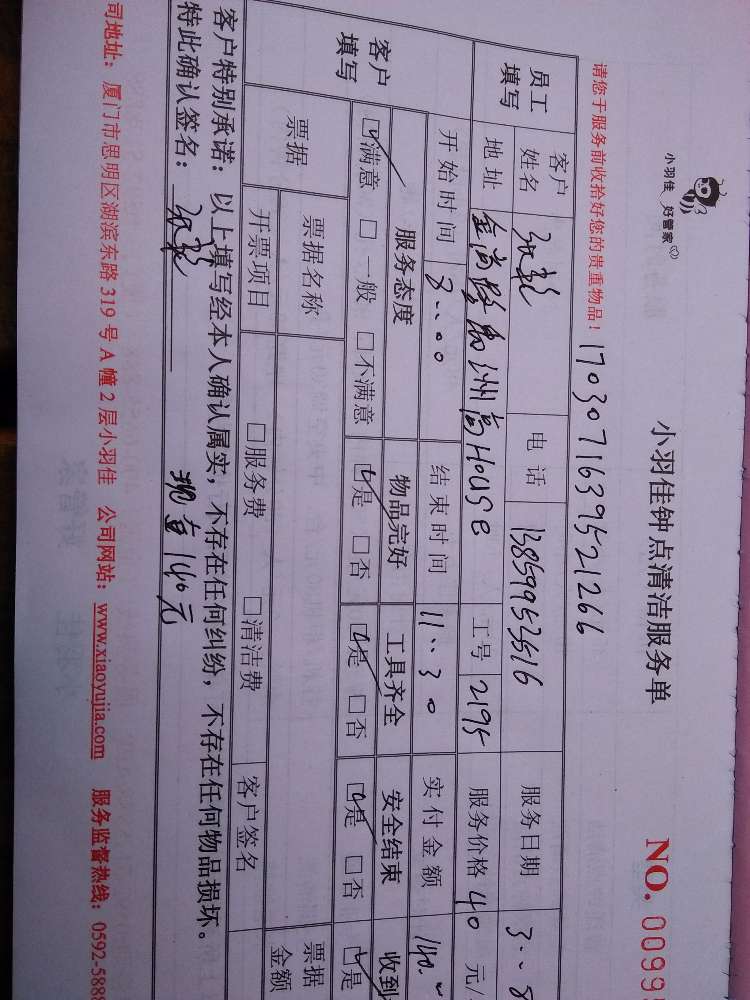 小羽佳 好管家
小羽佳钟点清洁服务单
NO. 0099
请您于服务前收拾好您的贵重物品！ 1703071639521266
员工填写 客户姓名 电话 13859953516 服务日期 3..8
地址 金尚路 House 工号 2195 服务价格 40 元/
开始时间 8..00 结束时间 11..30 实付金额 140.
客户填写 服务态度 物品完好 工具齐全 安全结束 收到
☑满意 □一般 □不满意 ☑是 □否 ☑是 □否 ☑是 □否 ☑是
票据 票据名称 票据金额
开票项目 □服务费 □清洁费 客户签名
客户特别承诺：以上填写经本人确认属实，不存在任何纠纷，不存在任何物品损坏。
特此确认签名： 140元
司地址：厦门市思明区湖滨东路 319 号 A 幢 2 层小羽佳 公司网站：www.xiaoyujia.com 服务监督热线：0592-5888